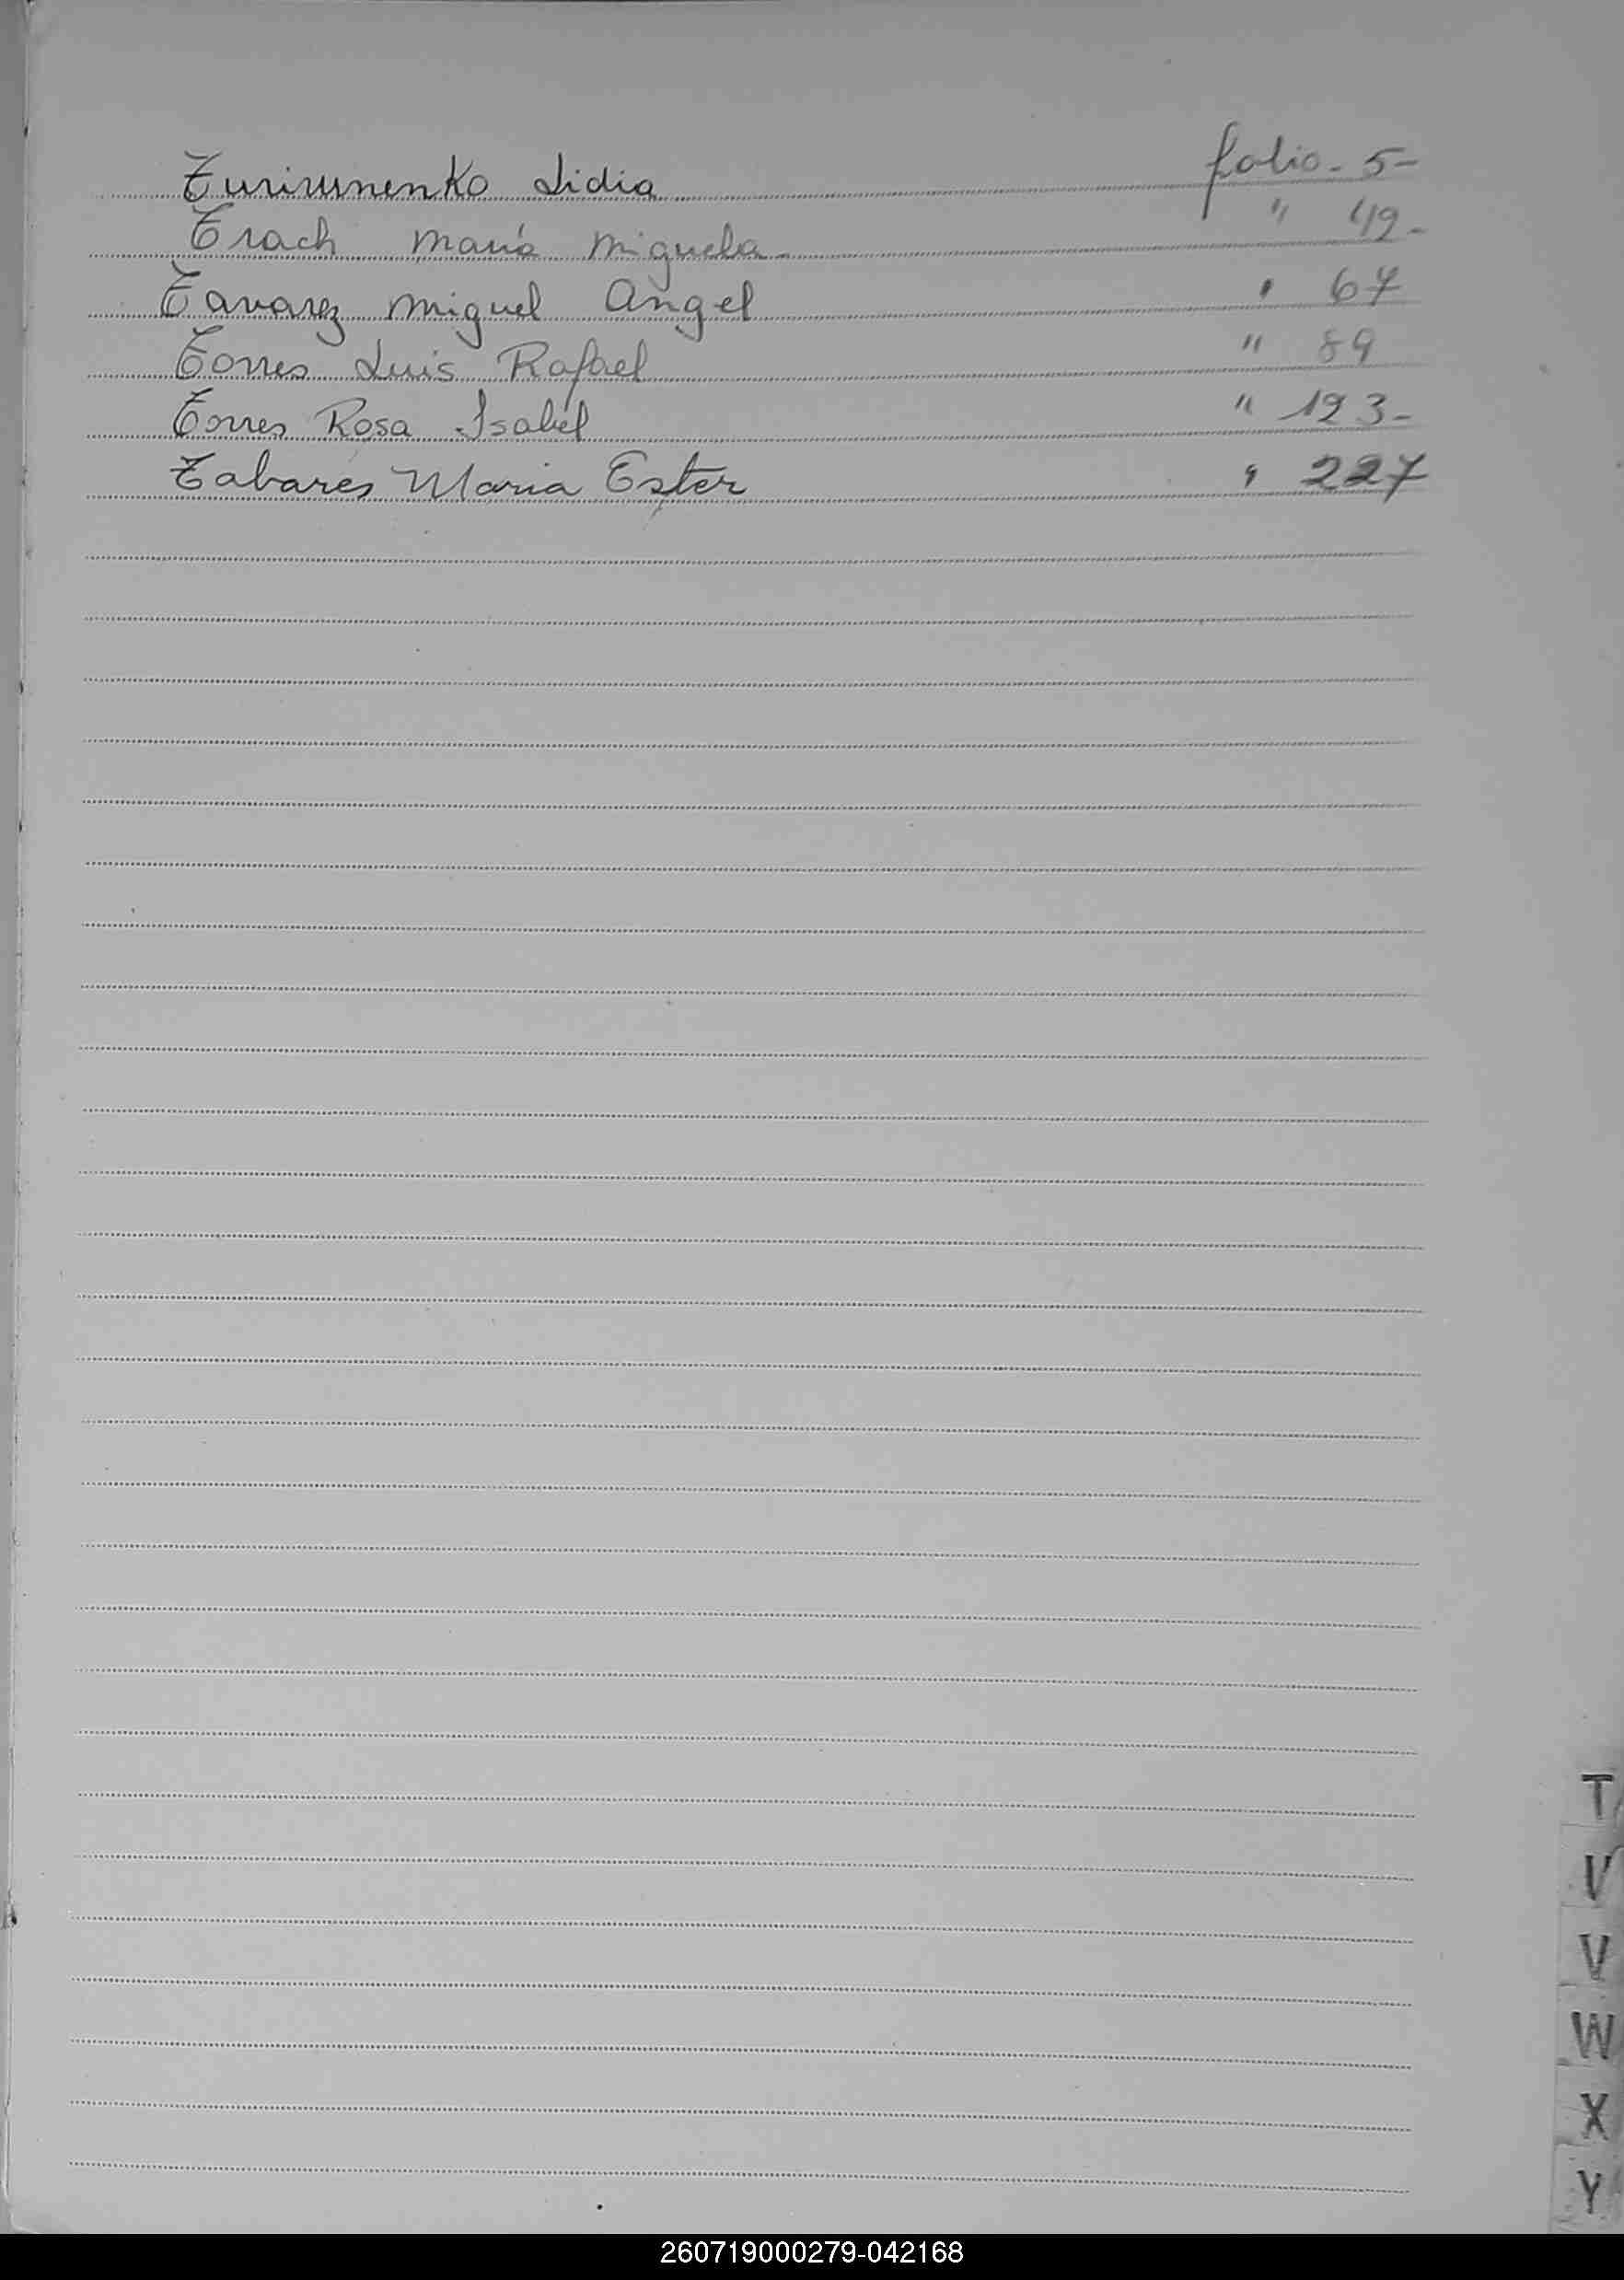 Turirunenko Lidia folio - 5 -
Trach María Miguela - " 49 -
Tavarez Miguel Angel " 67
Torres Luis Rafael " 89
Torres Rosa Isabel " 193 -
Tabares Maria Ester " 227
T
V
V
W
X
Y
260719000279-042168